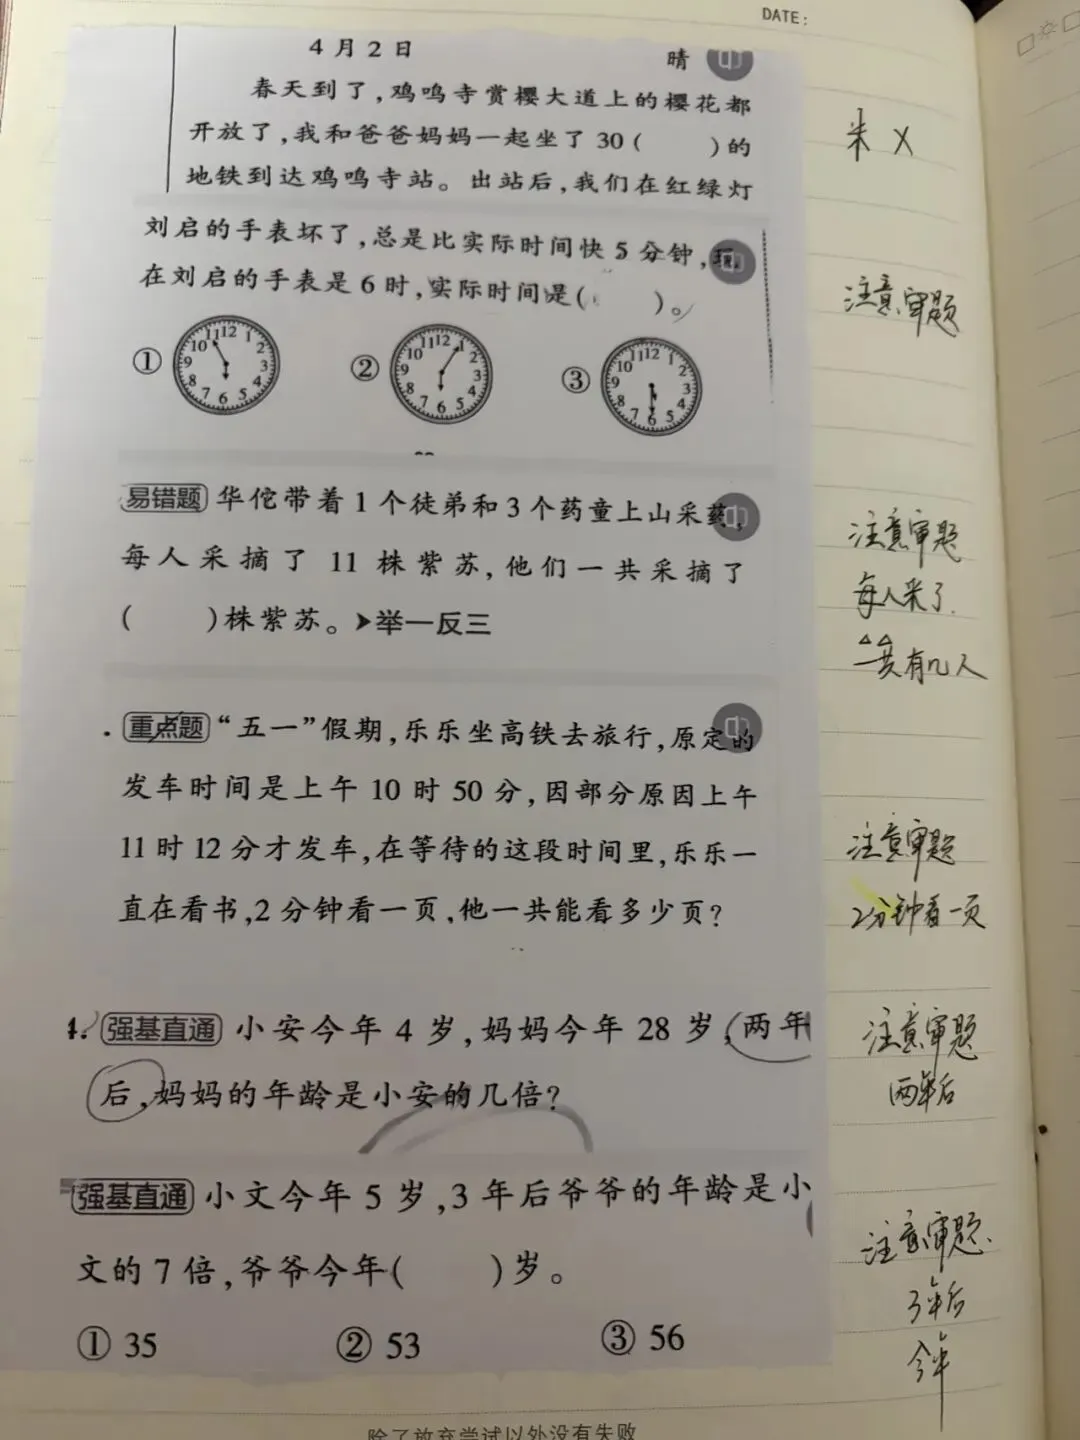 DATE:
4月2日 晴
春天到了,鸡鸣寺赏樱大道上的樱花都
开放了,我和爸爸妈妈一起坐了30( )的
地铁到达鸡鸣寺站。出站后,我们在红绿灯
米 X
刘启的手表坏了,总是比实际时间快5分钟,现
在刘启的手表是6时,实际时间是( )。
注意审题
① ② ③
易错题 华佗带着1个徒弟和3个药童上山采药,
每人采摘了 11 株紫苏,他们一共采摘了
( )株紫苏。➤举一反三
注意审题
每人采了.
一共有几人
重点题 “五一”假期,乐乐坐高铁去旅行,原定的
发车时间是上午 10 时 50 分,因部分原因上午
11时12分才发车,在等待的这段时间里,乐乐一
直在看书,2分钟看一页,他一共能看多少页?
注意审题
2分钟看一页
1. 强基直通 小安今年4岁,妈妈今年28岁,两年
后,妈妈的年龄是小安的几倍?
注意审题
两年后
强基直通 小文今年5岁,3年后爷爷的年龄是小
文的7倍,爷爷今年( )岁。
① 35 ② 53 ③ 56
注意审题.
3年后
今年
除了放弃尝试以外没有失败